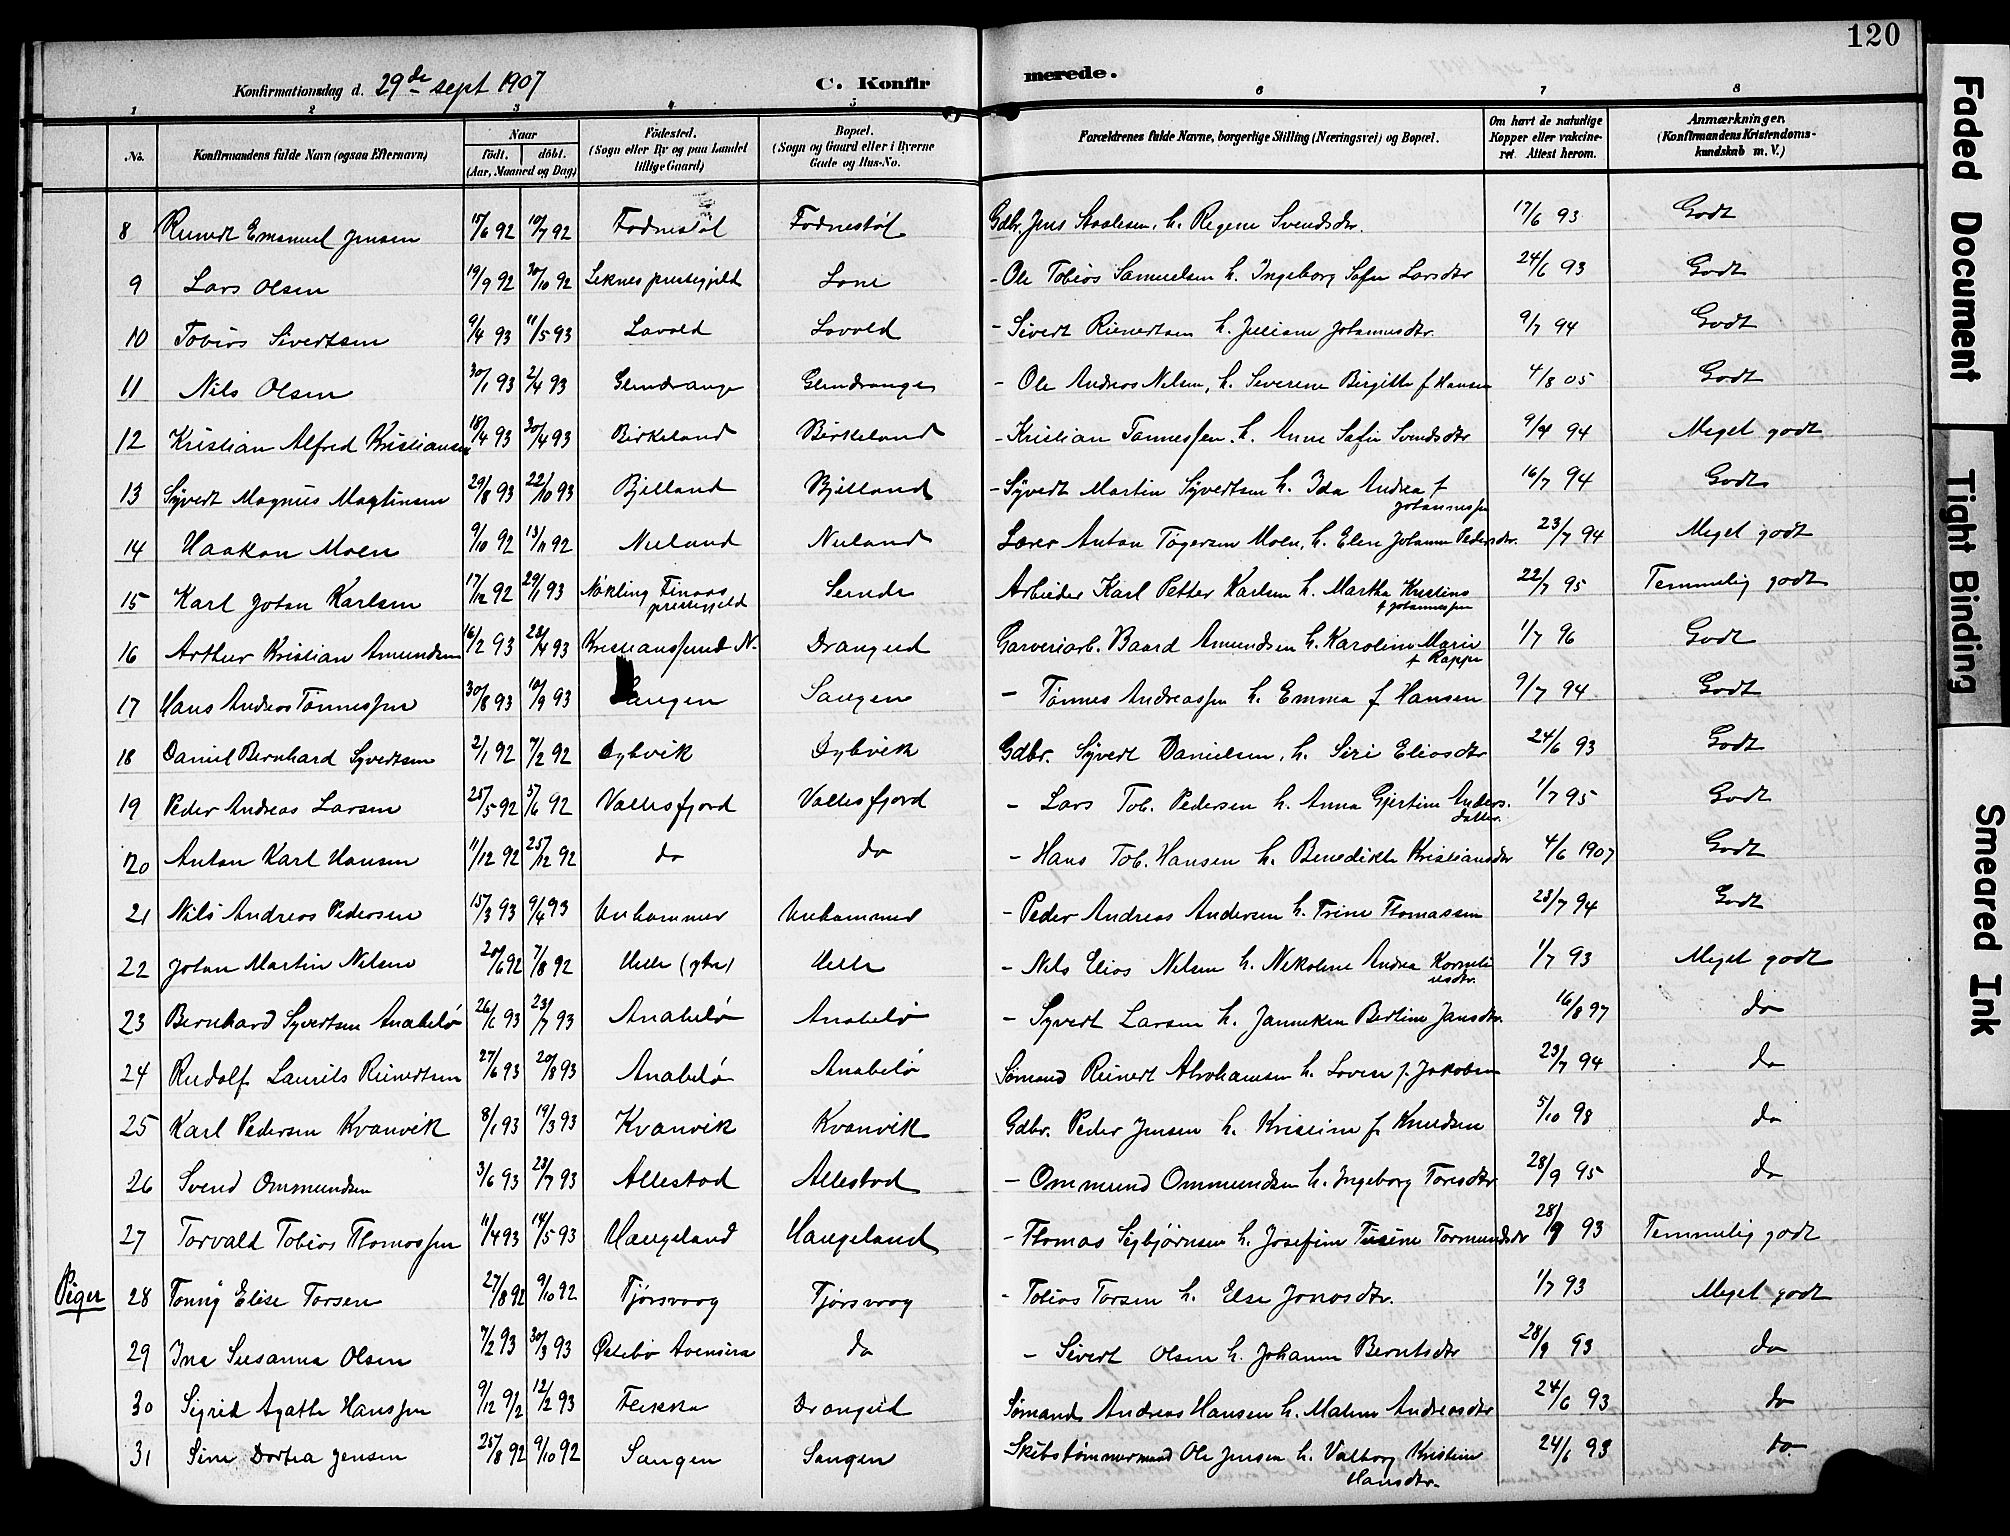 120
Konfirmationsdag d. 29de sept 1907 C. Konfirmerede.
1 2 3 4 5 6 7 8
No. Konfirmandens fulde Navn (ogsaa Efternavn) Naar født. døbt. (Aar, Maaned og Dag) Fødested. (Sogn eller By og paa Landet tillige Gaard) Bopæl. (Sogn og Gaard eller i Byerne Gade og Hus-No. Forældrenes fulde Navne, borgerlige Stilling (Næringsvei) og Bopæl. Om havt de naturlige Kopper eller vakcineret. Attest herom. Anmærkninger. (Konfirmandens Kristendomskundskab m. V.)
8 Reinert Emanuel Jensen 15/6 92 10/7 92 Fodnestøl Fodnestøl Gdbr. Jens Staalesen, h. Regine Svendsdtr. 17/6 93 Godt
9 Lars Olsen 19/9 92 30/10 92 Leknes prestegjeld Lone - Ole Tobias Samuelsen h. Ingeborg Sofie Larsdtr 24/6 93 Godt
10 Tobias Sivertsen 9/4 93 11/5 93 Lavold Lavold - Sivert Rienertsen h. Juliane Johannesdtr. 9/7 94 Godt
11 Nils Olsen 30/1 93 2/4 93 Glendrange Glendrange - Ole Andreas Nelsen, h. Severine Birgitte f Hansen 4/8 05 Godt
12 Kristian Alfred Kristiansen 18/4 93 30/4 93 Birkeland Birkeland - Kristian Tønnessen. h. Anne Sofie Svendsdtr 9/7 94 Meget godt
13 Syvert Magnus Martinsen 29/8 93 22/10 93 Bjelland Bjelland - Syvert Martin Syvertsen h. Ida Andrea f Johannessen 16/7 94 Godt
14 Haakon Moen 9/10 92 13/11 92 Nuland Nuland Lærer Anton Tøgersen Moen, h. Elen Johanne Pedersdtr. 23/7 94 Meget godt
15 Karl Johan Karlsen 17/12 92 29/1 93 Nøkling Finaas prestegjeld Sande Arbeider Karl Petter Karlsen h. Martha Kristine f Johannessen 22/7 95 Temmelig godt
16 Arthur Kristian Amundsen 16/2 93 23/4 93 Kristianssund N. Drangeid Garveriarb. Baard Amundsen h. Karoline Marie f Rappe 1/7 96 Godt
17 Hans Andreas Tønnessen 30/8 93 10/9 93 Laugen Saugen - Tønnes Andreassen h. Emma f Hansen 9/7 94 Godt
18 Daniel Bernhard Syvertsen 2/1 92 7/2 92 Dybvik Dybvik Gdbr. Syvert Danielsen, h. Siri Eliasdtr 24/6 93 Godt
19 Peder Andreas Larsen 25/5 92 5/6 92 Vallesfjord Vallesfjord - Lars Tob. Pedersen h. Anna Gjertine Andersdatter. 1/7 95 Godt
20 Anton Karl Hansen 11/12 92 25/12 92 do do - Hans Tob. Hansen h. Benedikte Kristiansdtr 4/6 1907 Godt
21 Nils Andreas Pedersen 15/3 93 9/4 93 Urhammer Urehammer - Peder Andreas Andersen h. Trine Thomassen 23/7 94 Godt
22 Johan Martin Nilsen 20/6 92 7/8 92 Helle (ytre) Helle - Nils Elias Nilsen h. Nikoline Andrea Korneliusdtr. 1/7 93 Meget godt
23 Bernhard Syvertsen Anabelø 26/6 93 23/7 93 Anabelø Anabelø - Syvert Larsen h. Janneken Bertine Jansdtr. 16/8 97 do
24 Rudolf Laurits Reinertsen 27/6 93 20/8 93 Anabelø Anabelø Sømand Reinert Abrahamsen h. Lovise f. Jakobsen 23/7 94 do
25 Karl Pedersen Kvanvik 8/1 93 19/3 93 Kvanvik Kvanvik Gdbr. Peder Jensen h. Kristine f Knudsen 5/10 98 do
26 Svend Ommundsen 3/6 93 23/7 93 Allestad Allestad - Ommund Ommundsen h. Ingeborg Toresdtr 28/9 95 do
27 Torvald Tobias Thomassen 11/4 93 14/5 93 Haugeland Haugeland - Thomas Sigbjørnsen h. Josefine Tusine Tormundsdtr 28/9 93 Temmelig godt
Piger 28 Tonny Elise Torsen 27/8 92 9/10 92 Tjørsvaag Tjørsvaag - Tobias Torsen h. Else Jonasdtr. 1/7 93 Meget godt
29 Ina Susanna Olsen 7/2 93 30/3 93 Østebø do - Sivert Olsen h. Johanne Berntsdtr 28/9 93 do
30 Sigrid Agathe Hanssen 9/12 92 12/2 93 Fekke Drangeid Sømand Andreas Hansen h. Malene Andreasdtr 24/6 93 do
31 Sine Dortea Jensen 25/8 92 9/10 92 Saugen Saugen Skibstømmermand Ole Jensen h. Valborg Kristine Hansdtr. 24/6 93 do
Faded Document
Tight Binding
Smeared Ink